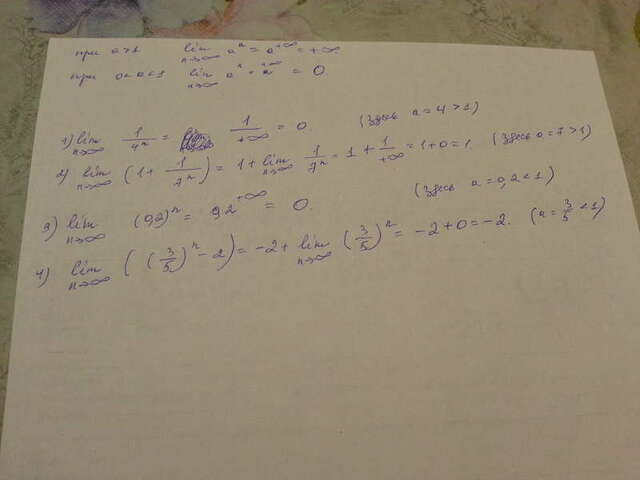 при a>1 lim n→∞ aⁿ = a^+∞ = +∞.
при 0<a<1 lim n→∞ aⁿ = a^+∞ = 0.
1) lim n→∞ 1/4ⁿ = 1/+∞ = 0. (Здесь a=4>1)
2) lim n→∞ (1+ 1/7ⁿ) = 1+ lim n→∞ 1/7ⁿ = 1 + 1/+∞ = 1+0=1. (Здесь a=7>1)
3) lim n→∞ (0,2)ⁿ = 0,2^+∞ = 0. (Здесь a=0,2<1)
4) lim n→∞ ((3/5)ⁿ - 2) = -2+ lim n→∞ (3/5)ⁿ = -2+0=-2. (a=3/5<1)